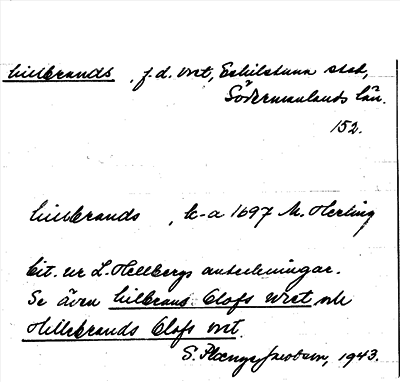 hillbrands, f.d. vret, Eskilstuna stad,
Södermanlands län.
152.
hillbrands, k-a 1697 M. Herling
Cit. ur L. Hellbergs anteckningar.
Se även hilbrans Olofs wret och
Hillebrands Olofs vret.
S. 1943.